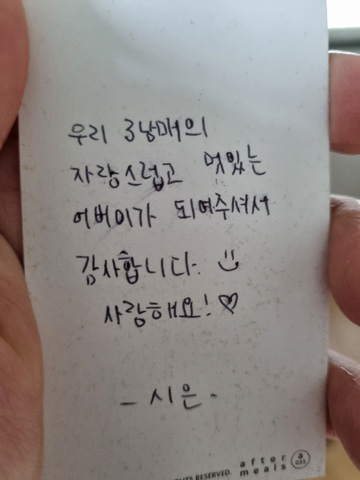 우리 3남매의
자랑스럽고 멋있는
어버이가 되어주셔서
감사합니다. :)
사랑해요! ♡
- 시은 -
RIGHTS RESERVED.
after
meals